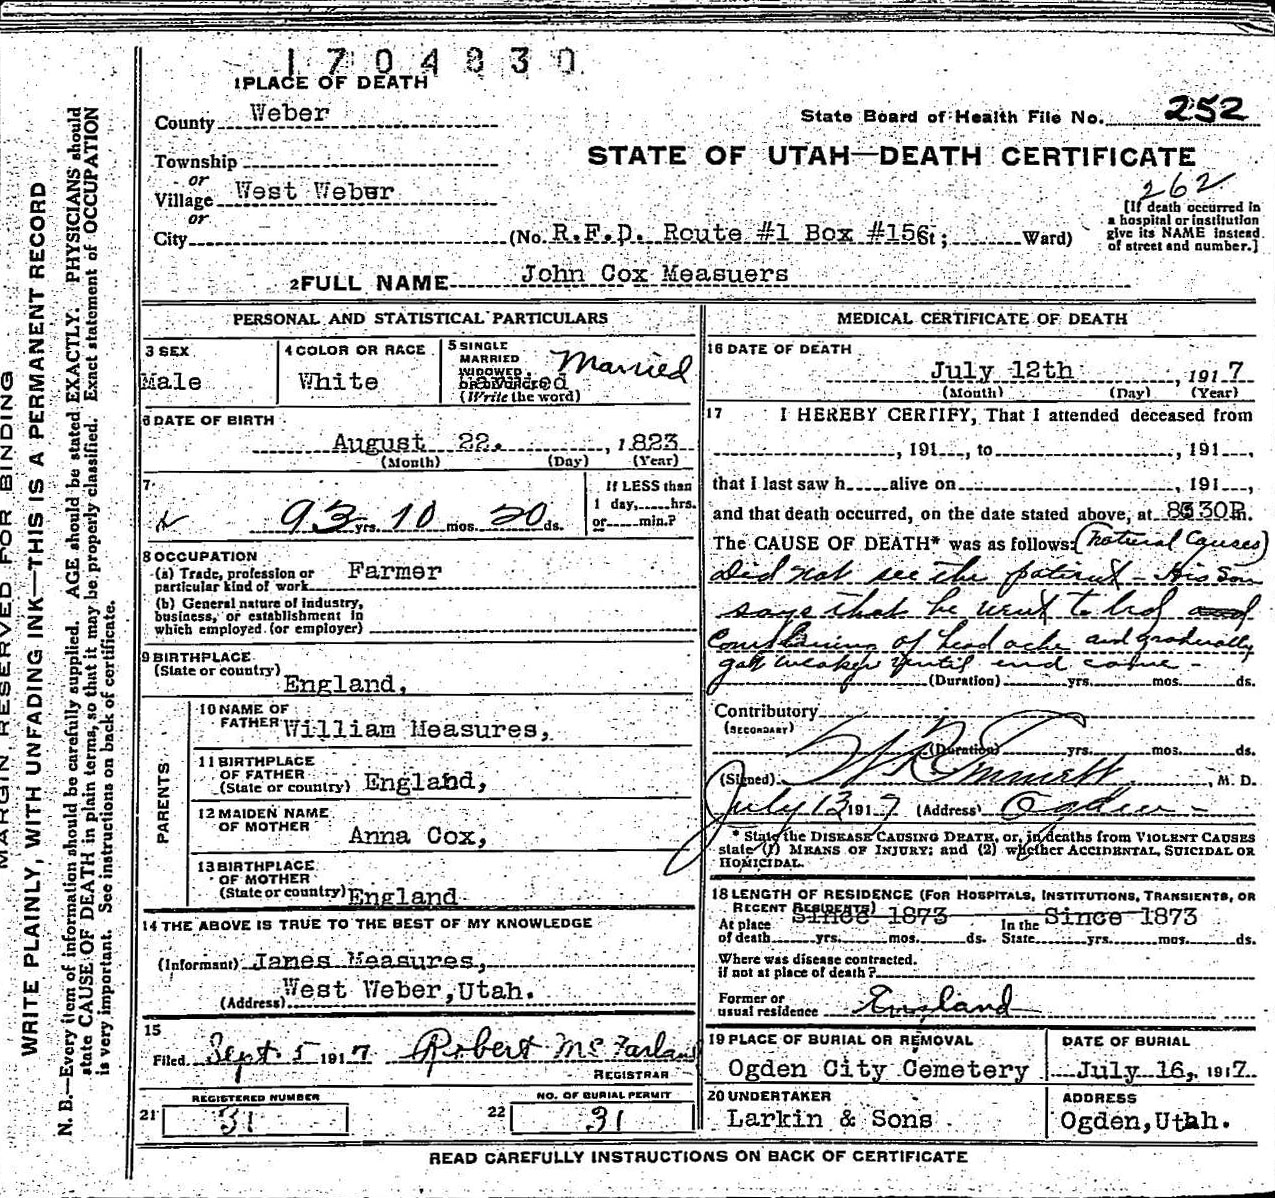 1704030
1 PLACE OF DEATH
County Weber
State Board of Health File No. 252
Township
STATE OF UTAH—DEATH CERTIFICATE
or
Village West Weber
262
or
City (No. R.F.D. Route #1 Box #156 St; Ward)
[If death occurred in
a hospital or institution
give its NAME instead
of street and number.]
2 FULL NAME John Cox Measuers
PERSONAL AND STATISTICAL PARTICULARS
3 SEX
Male
4 COLOR OR RACE
White
5 SINGLE
MARRIED
WIDOWED
(Write the word)
Married
6 DATE OF BIRTH
August 22. , 1823
(Month) (Day) (Year)
7
93 yrs. 10 mos. 20 ds.
If LESS than
1 day, hrs.
or min.?
8 OCCUPATION
(a) Trade, profession or
particular kind of work Farmer
(b) General nature of industry,
business, or establishment in
which employed (or employer)
9 BIRTHPLACE
(State or country)
England,
PARENTS
10 NAME OF
FATHER William Measures,
11 BIRTHPLACE
OF FATHER
(State or country) England,
12 MAIDEN NAME
OF MOTHER
Anna Cox,
13 BIRTHPLACE
OF MOTHER
(State or country) England
14 THE ABOVE IS TRUE TO THE BEST OF MY KNOWLEDGE
(Informant) James Measures,
(Address) West Weber, Utah.
15
Filed Sept 5 1917 Robert McFarland
REGISTRAR
REGISTERED NUMBER
21 31
NO. OF BURIAL PERMIT
22 31
MEDICAL CERTIFICATE OF DEATH
16 DATE OF DEATH
July 12th , 1917
(Month) (Day) (Year)
17 I HEREBY CERTIFY, That I attended deceased from
, 191 , to , 191 ,
that I last saw h alive on , 191 ,
and that death occurred, on the date stated above, at 8:30P m.
The CAUSE OF DEATH* was as follows: (Natural Causes)
Did not see the patient - His Son
says that he went to bed and
complaining of headache and gradually
got weaker until end came -
(Duration) yrs. mos. ds.
Contributory
(SECONDARY)
(Duration) yrs. mos. ds.
(Signed) M. D.
July 13 1917 (Address) Ogden -
* State the DISEASE CAUSING DEATH, or, in deaths from VIOLENT CAUSES
state (1) MEANS OF INJURY; and (2) whether ACCIDENTAL, SUICIDAL OR
HOMICIDAL.
18 LENGTH OF RESIDENCE (FOR HOSPITALS, INSTITUTIONS, TRANSIENTS, OR
RECENT RESIDENTS)
At place
of death yrs. mos. ds. since 1873
In the
State yrs. mos. ds. Since 1873
Where was disease contracted.
if not at place of death?
Former or
usual residence England
19 PLACE OF BURIAL OR REMOVAL
Ogden City Cemetery
DATE OF BURIAL
July 16, 1917.
20 UNDERTAKER
Larkin & Sons
ADDRESS
Ogden, Utah.
READ CAREFULLY INSTRUCTIONS ON BACK OF CERTIFICATE
MARGIN RESERVED FOR BINDING
WRITE PLAINLY, WITH UNFADING INK—THIS IS A PERMANENT RECORD
N. B.—Every item of information should be carefully supplied. AGE should be stated EXACTLY. PHYSICIANS should
state CAUSE OF DEATH in plain terms, so that it may be properly classified. Exact statement of OCCUPATION
is very important. See instructions on back of certificate.